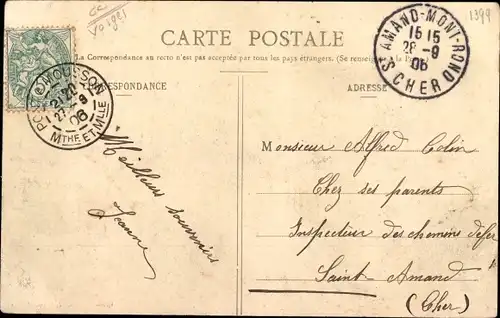 GC
Vosges
1399
CARTE POSTALE
La Correspondance au recto n'est pas acceptée par tous les pays étrangers. (Se renseigner à la
CORRESPONDANCE
ADRESSE
PONT-A-MOUSSON
27-9
06
MTHE ET MLLE
ST AMAND-MONT-ROND
15 15
28-9
06
CHER
Meilleurs souvenirs
Jeanne
Monsieur Alfred Colin
Chez ses parents
Inspecteur des chemins de fer
Saint-Amand
(Cher)